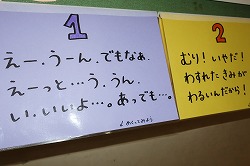 1
えー.うーん.でもなあ.
えーっと…う.うん.
い.いいよ…。あっでも…。
めくってみよう
2
むり!いやだ!
わすれた きみが
わるいんだから!